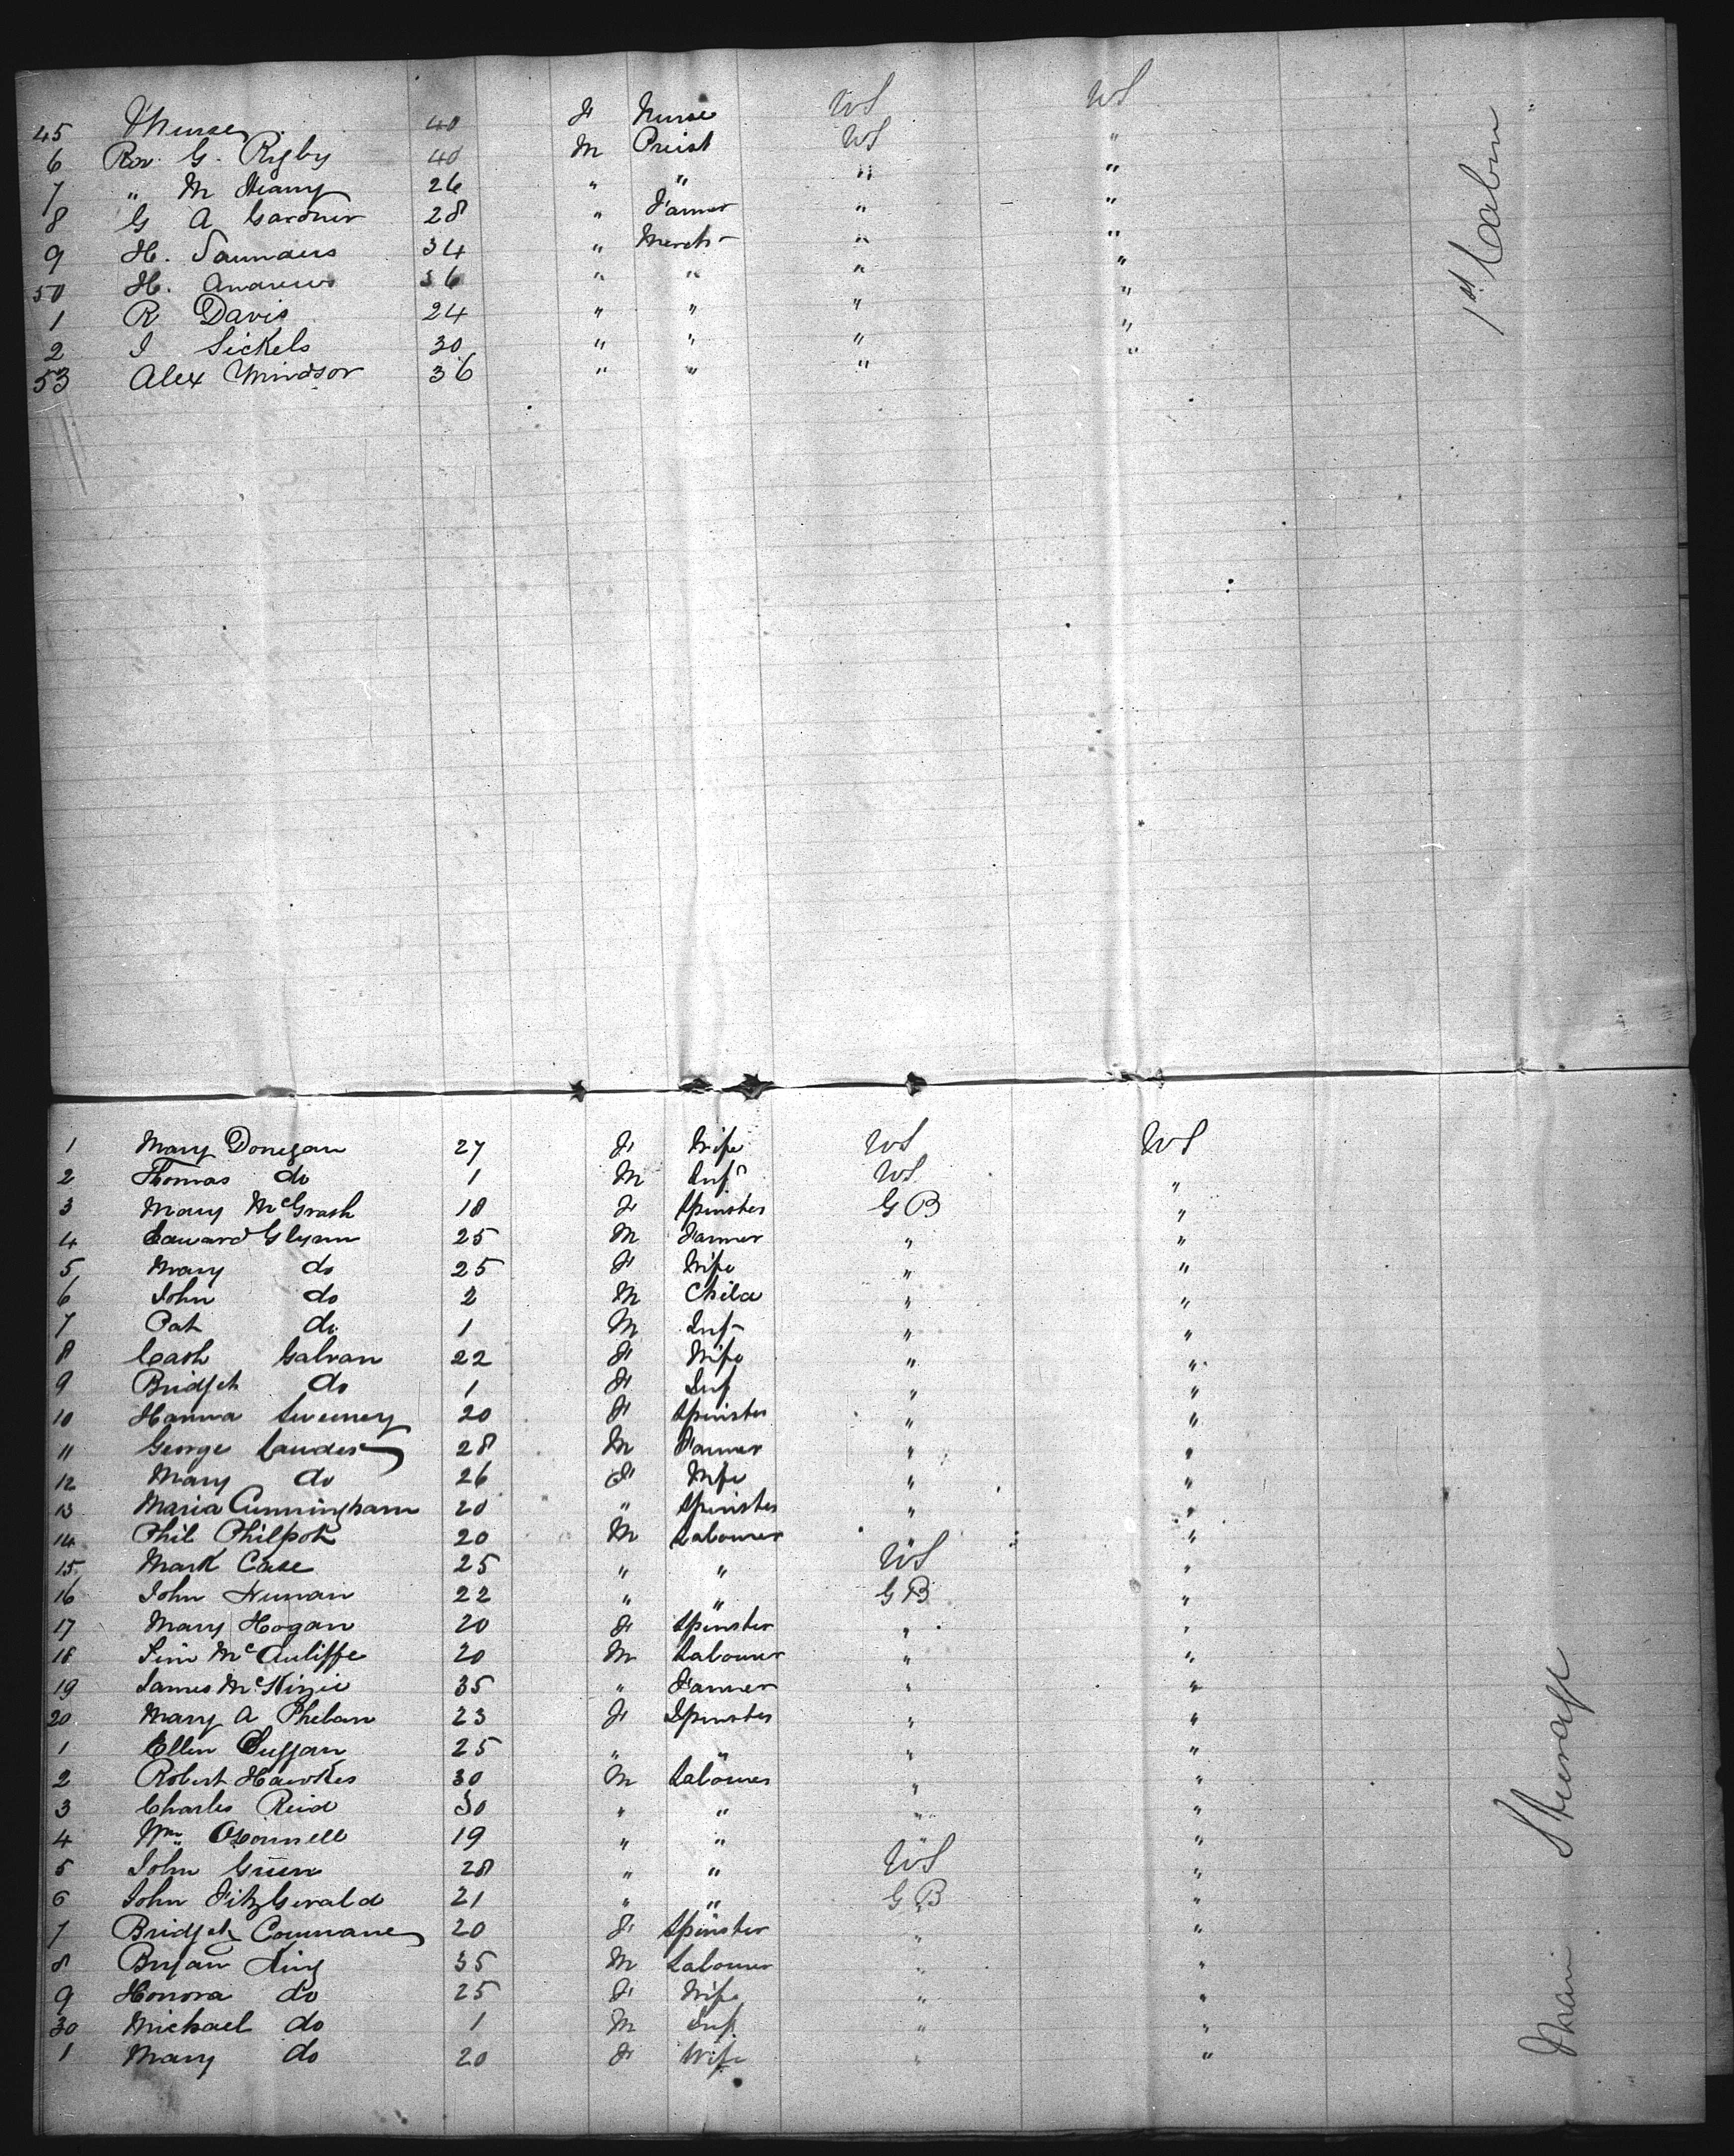 45 Nurse 40 F Nurse US US
6 Rev. G. Rigby 40 M Preist US "
7 " M 26 " " " "
8 G A Gardner 28 " Farmer " "
9 H. Saunders 34 " Merch " "
50 H. Andrews 36 " " " "
1 R Davis 24 " " " "
2 J Sickels 30 " " " "
53 Alex Windsor 36 " " " "
1st Cabin
1 Mary Donegan 27 F Wife US US
2 Thomas do 1 M Inft US "
3 Mary McGrath 18 F Spinster G B "
4 Edward Glynn 25 M Farmer " "
5 Mary do 25 F Wife " "
6 John do 2 M Child " "
7 Pat do 1 M Inft " "
8 Cath Galvan 22 F Wife " "
9 Bridget do 1 F Inf " "
10 Hanna Sweeney 20 F Spinster " "
11 George 28 M Farmer " "
12 Mary do 26 F Wife " "
13 Maria Cunningham 20 " Spinster " "
14 Phil Philpot 20 M Labourer " "
15 Mark Case 25 " " US "
16 John Nunan 22 " " G B "
17 Mary Hogan 20 F Spinster " "
18 Tim McAuliffe 20 M Labourer " "
19 James McKinzie 35 " Farmer " "
20 Mary A Phelan 23 F Spinster " "
1 Ellen Duggan 25 " " " "
2 Robert Hawkes 30 M Labourer " "
3 Charles Reid 30 " " " "
4 Wm OConnell 19 " " " "
5 John Green 28 " " US "
6 John FitzGerald 21 " " G B "
7 Bridget Counane 20 F Spinster " "
8 Bryan King 35 M Labourer " "
9 Honora do 25 F Wife " "
30 Michael do 1 M Inf " "
1 Mary do 20 F Wife " "
Main Steerage